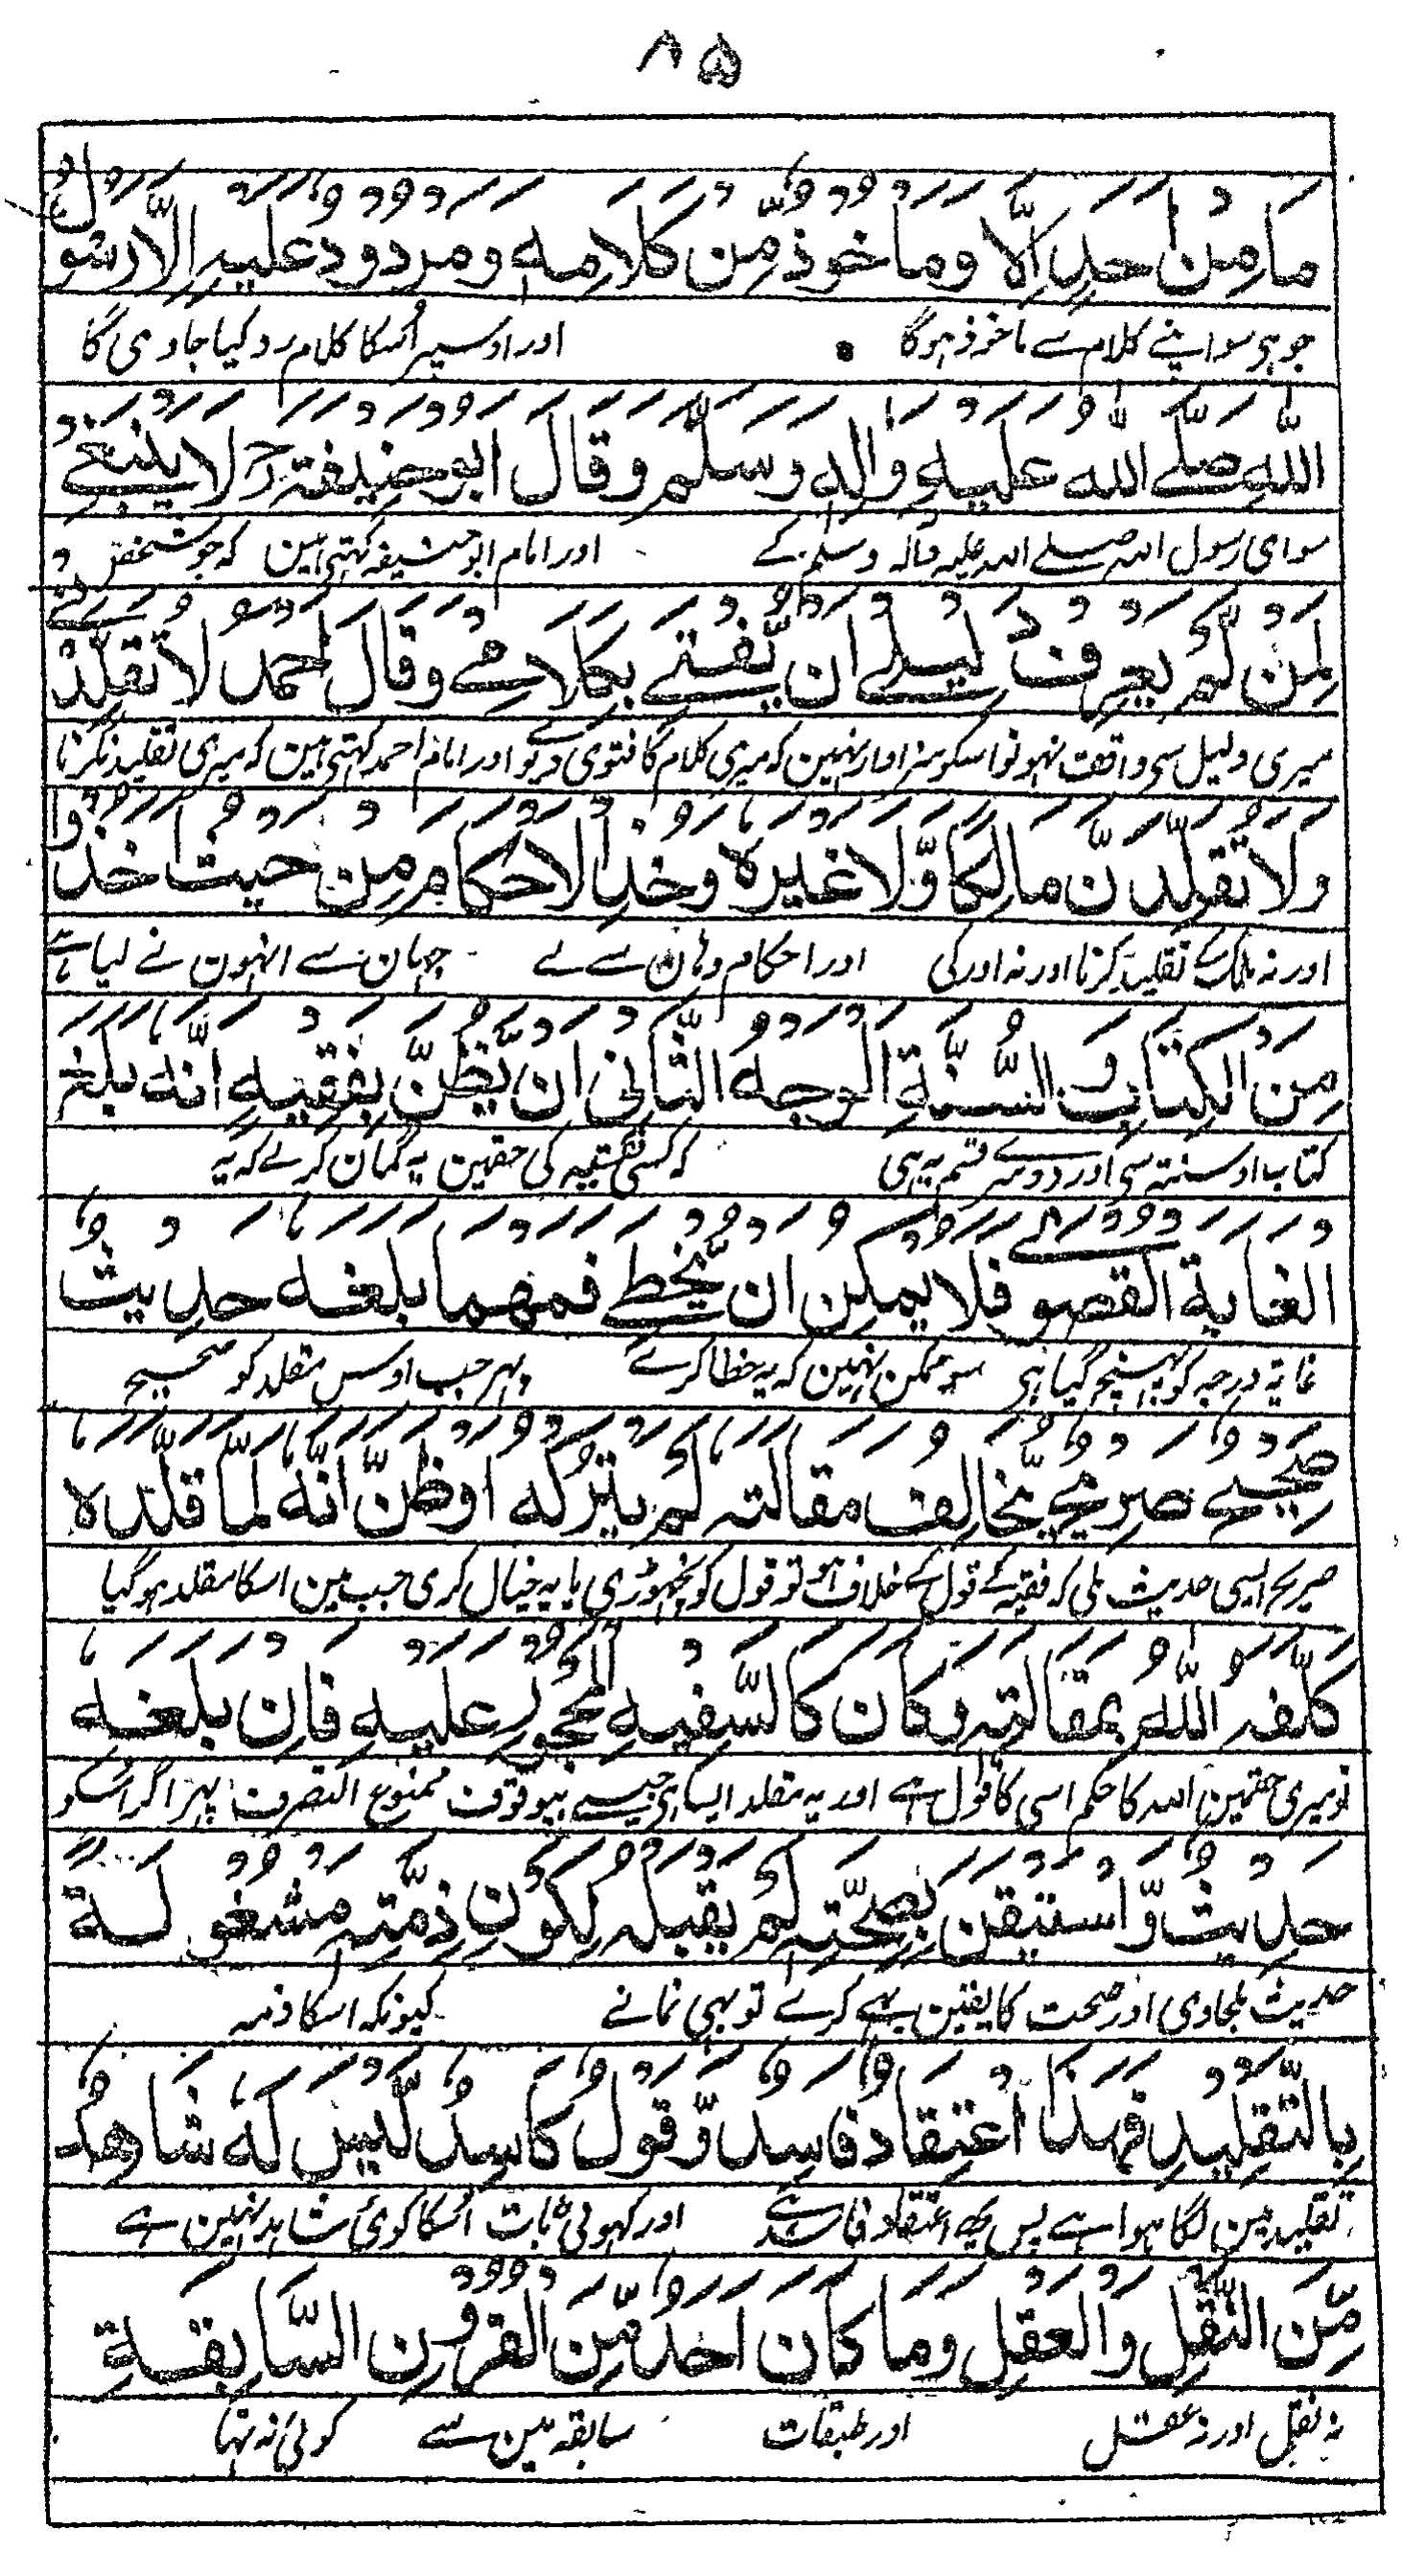 ٨٥
مَا مِنْ اَحَدٍ اِلَّا وَمَاخُوْذٌ مِّنْ كَلَامِهٖ وَمَرْدُوْدٌ عَلَيْهِ اِلَّا رَسُوْلُ
جو ہی سو اپنے کلام سے ماخوذ ہوگا اور اوسپر اُسکا کلام رد کیا جاوی گا
اللّٰهِ صَلَّے اللّٰهُ عَلَيْهِ وَاٰلِهٖ وَسَلَّمَ وَقَالَ اَبُوْحَنِيْفَةَ رح لَا يَنْبَغِےْ
سوای رسول اللہ صلے اللہ علیہ وآلہ وسلم کے اور امام ابو حنیفہ کہتی ہین کہ جو شخص
لِمَنْ لَّمْ يَعْرِفْ دَلِيْلِےْ اَنْ يُّفْتِےَ بِكَلَامِےْ وَقَالَ اَحْمَدُ لَا تُقَلِّدْنِےْ
میری دلیل سی واقف نہو تو اسکو سزاوار نہین کہ میری کلام کا فتوی دیوے اور امام احمد کہتی ہین کہ میری تقلید نکرنا
وَلَا تُقَلِّدَنَّ مَالِكًا وَّلَا غَيْرَهٗ وَخُذِ الْاَحْكَامَ مِنْ حَيْثُ اَخَذُوْا
اور نہ مالک کے تقلید کرنا اور نہ اور کی اور احکام وہان سے لے جہان سے انہون نے لیا ہے
مِنَ الْكِتَابِ وَالسُّنَّةِ الْوَجْهُ الثَّانِیْ اَنْ يَّظُنَّ بِفَقِيْهٍ اَنَّهٗ بَلَغَ
کتاب او سنتہ سی اور دوسرے قسم یہ ہی کہ کسی فقیہ کی حقمین یہ گمان کرلے کہ یہ
الْغَايَةَ الْقُصْوٰےْ فَلَا يُمْكِنُ اَنْ يُّخْطِےَ فَمَهْمَا بَلَغَهٗ حَدِيْثٌ
غایۃ درجہ کو پہنچ گیا ہی سو ممکن نہین کہ یہ خطا کرے پہر جب اوس مقلد کو صحیح
صَحِيْحٌ صَرِيْحٌ يُّخَالِفُ مَقَالَتَهٗ لَمْ يَتْرُكْهُ اَوْ ظَنَّ اَنَّهٗ لَمَّا قَلَّدَهٗ
صریح ایسی حدیث ملی کہ فقیہ کے قول کے خلاف ہو تو قول کو نچہوڑی یا یہ خیال کری جب مین اسکا مقلد ہو گیا
كَلَّفَهُ اللّٰهُ بِمَقَالَتِهٖ وَكَانَ كَالسَّفِيْهِ الْمَحْجُوْرِ عَلَيْهِ فَاِنْ بَلَغَهٗ
تو میری حقمین اللہ کا حکم اسی کا قول ہے اور یہ مقلد ایسا ہی جیسے بیوقوف ممنوع التصرف پہر اگر اسکو
حَدِيْثٌ وَّاسْتَيْقَنَ بِصِحَّتِهٖ لَمْ يَقْبَلْهُ لِكَوْنِ ذِمَّتِهٖ مَشْغُوْلَةً
حدیث ملجاوی اور صحت کا یقین بہے کرلے تو بہی نمانے کیونکہ اسکا ذمہ
بِالتَّقْلِيْدِ فَهٰذَا اِعْتِقَادٌ فَاسِدٌ وَّقَوْلٌ كَاسِدٌ لَّيْسَ لَهٗ شَاهِدٌ
تقلید مین لگا ہوا ہے پس یہ اعتقاد فاسد ہے اور کہوٹی بات اُسکا کوئی شاہد نہین ہے
مِّنَ النَّقْلِ وَالْعَقْلِ وَمَا كَانَ اَحَدٌ مِّنَ الْقُرُوْنِ السَّابِقَةِ
نہ نقل اور نہ عقل اور طبقات سابقہ مین سے کوئی نہ تہا